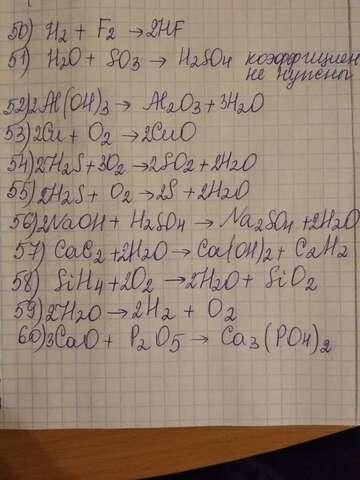 50) H2 + F2 → 2HF
51) H2O + SO3 → H2SO4 коэффициен
не нужны
52) 2Al(OH)3 → Al2O3 + 3H2O
53) 2Cu + O2 → 2CuO
54) 2H2S + 3O2 → 2SO2 + 2H2O
55) 2H2S + O2 → 2S + 2H2O
56) 2NaOH + H2SO4 → Na2SO4 + 2H2O
57) CaC2 + 2H2O → Ca(OH)2 + C2H2
58) SiH4 + 2O2 → 2H2O + SiO2
59) 2H2O → 2H2 + O2
60) 3CaO + P2O5 → Ca3(PO4)2